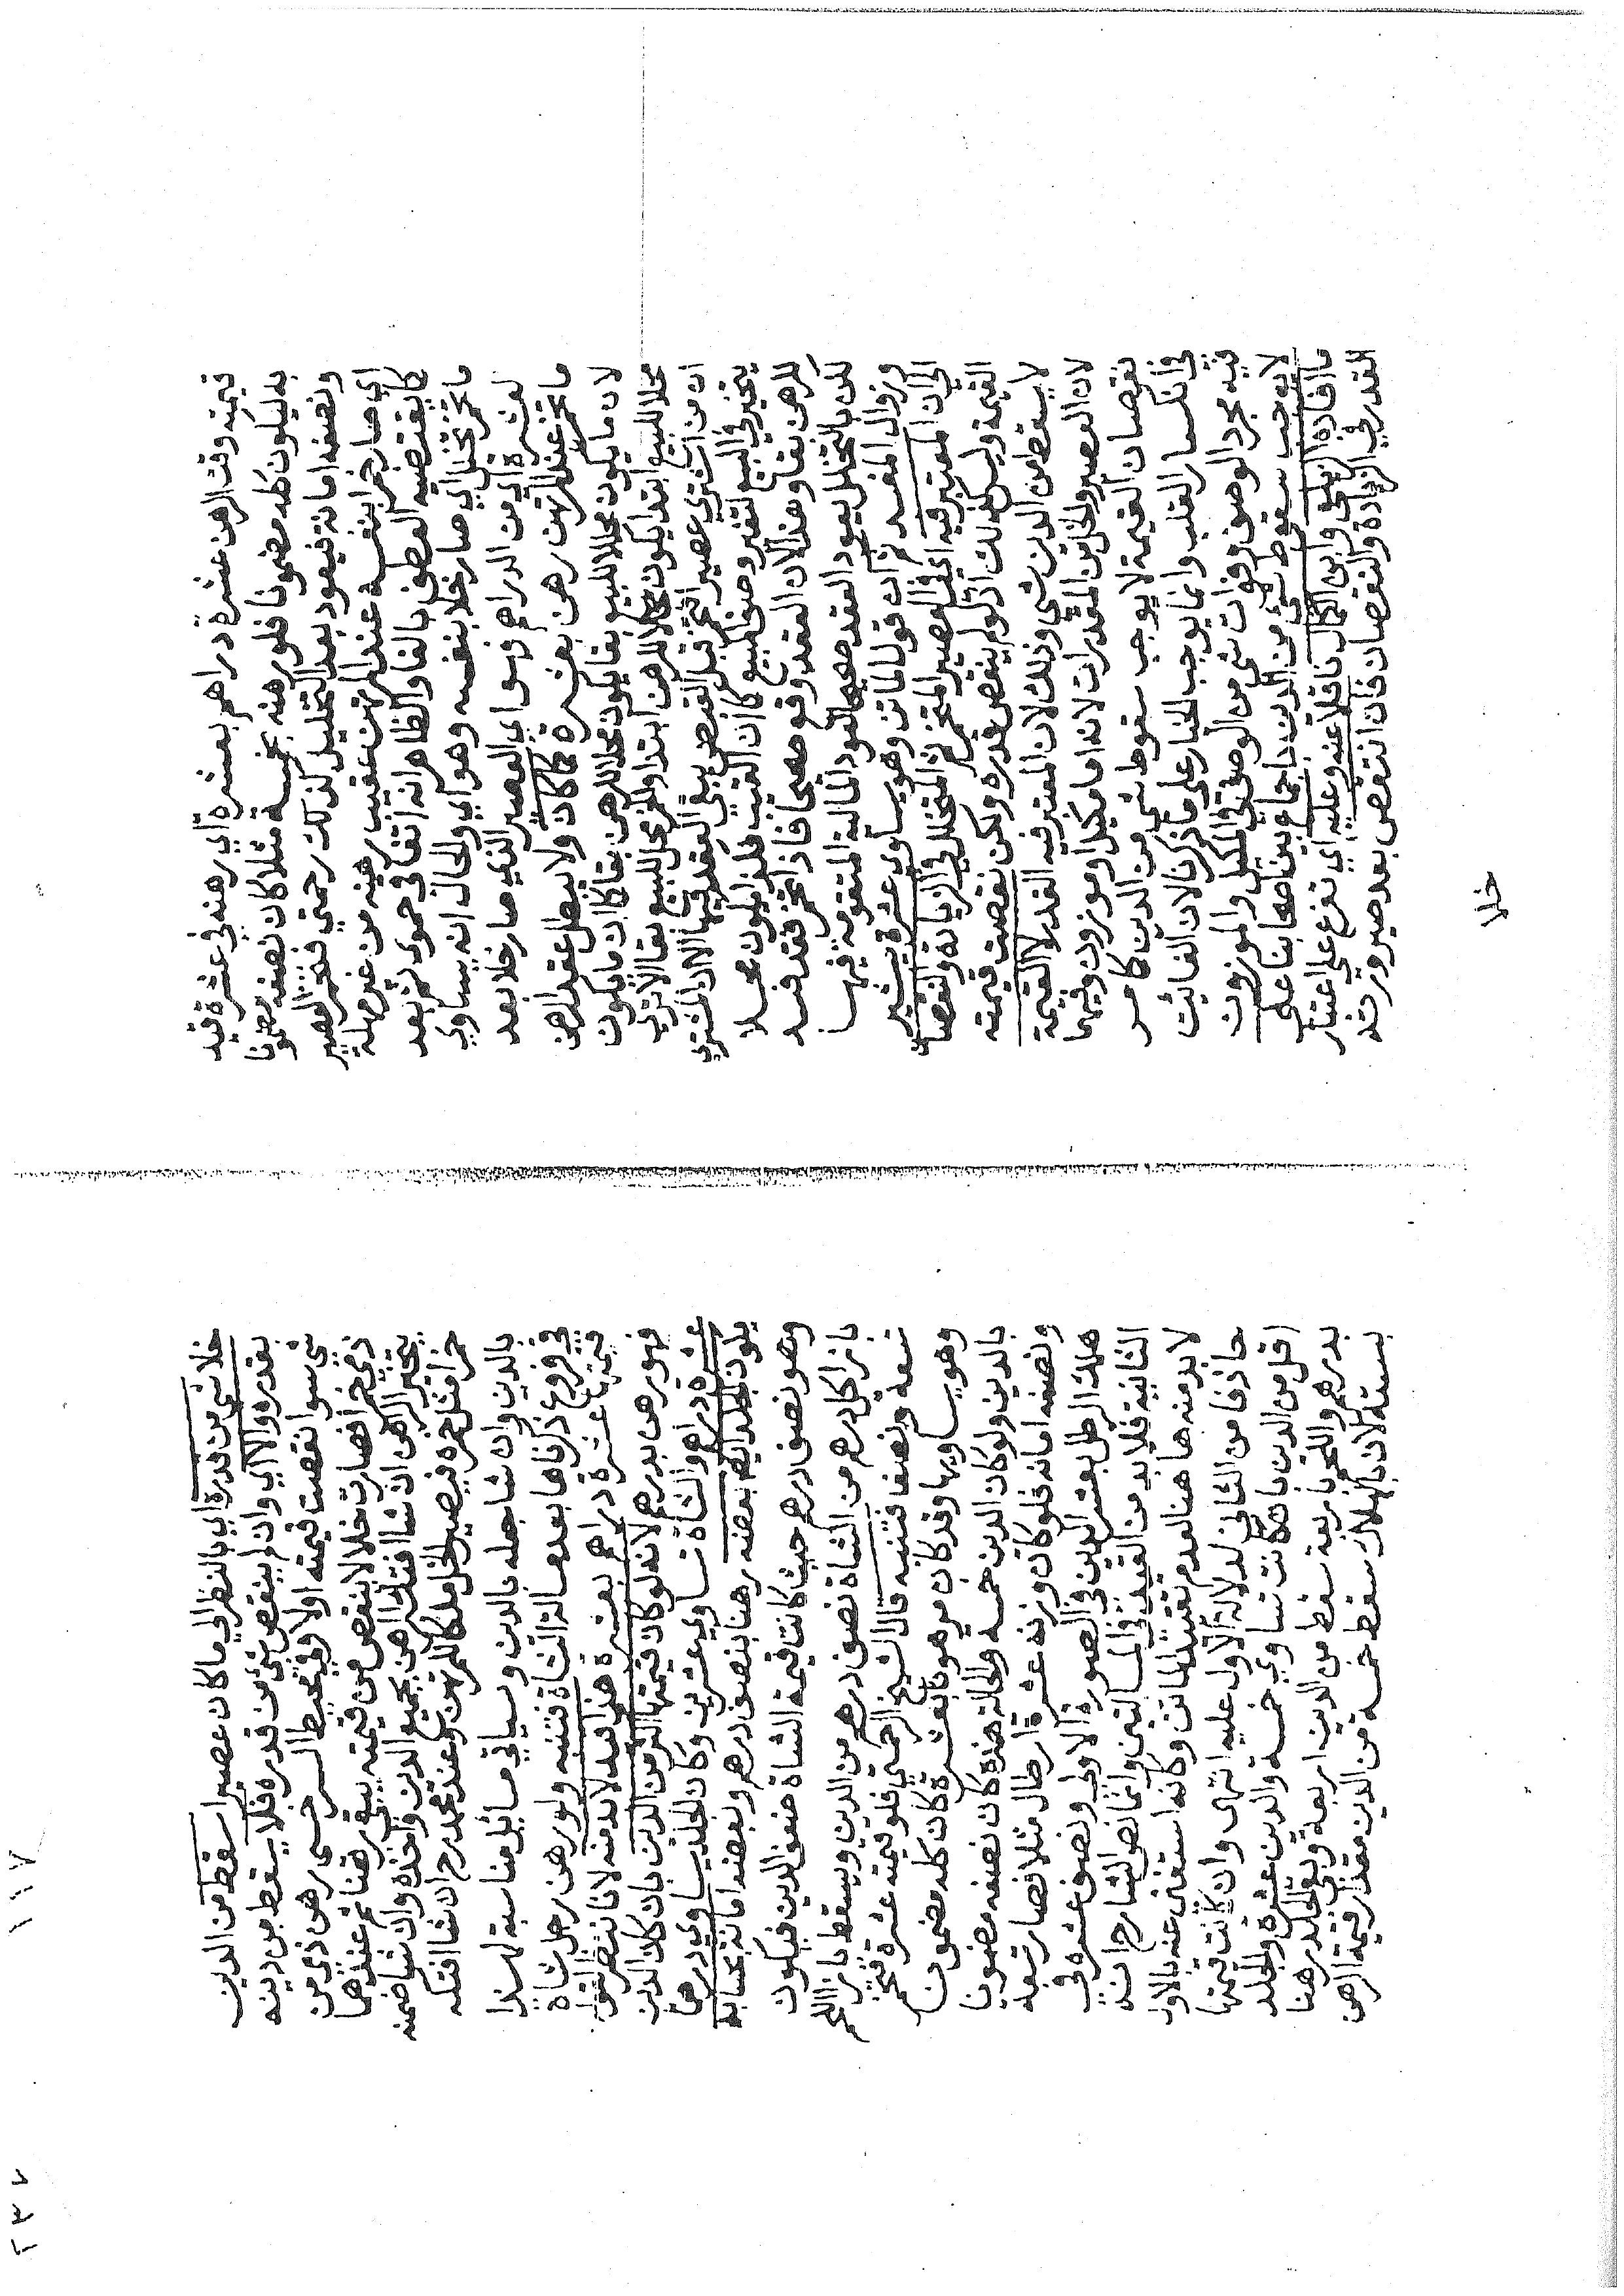 قيمته وقت الرهن عشرة دراهم بعشرة اي رهنه في عشرة قيد
به ليكون كله مضمونا فلو رهنه بخمسة مثلا كان نصفه مضمونا
ونصفه امانة فيعود بعد التخليل كذلك رحمتي فتخمر العصير
اي صار خمرا بنفسه عند المرتهن عقيب رهنه من غير مهلة
كما يقتضيه العطف بالفاء والظاهر انه اتفاقي حموى ثم بعد
ما تخمر تخلل اي صار خلا بنفسه وهو اي والحال انه يساوي
لعشرة اي من الدراهم فهو اي العصير الذي صار خلا بعد
ما تخمر عند المرتهن رهن بعشرة كما كان ولا يبطل عقد الرهن
لان ما يكون محلا للبيع بقا يكون محلا للرهن بقا كما ان ما يكون
محلا للبيع ابتدا يكون محلا للرهن ابتدا والخمر محل للبيع بقا الا ترى
ان من اشترى عصيرا فتخمر قبل القبض يبقى العقد فيها الا ان المشتري
يتخير في البيع لتغير وصف المبيع كما ان العقيب فلذا يكون محلا
للرهن بقاء وهذا لان العقد وقع صحيحا فاذا تخمر فقد فسد
لكن بالتخلل يعود العقد صحيحا لعود المالية المتقومة فيها
وزوال المفسد ثم ان قول الماتن وهو يساوي عشرة يشير
الى ان المعتبر فيه اي في العصير المتخمر ثم المتخلل في الزيادة والنقصان
القيمة وليس كذلك اذ لو لم ينقص قدره ولكن نقصت قيمته
لا يسقط من الدين شي وذلك لان المعتبر فيه القدر لا القيمة
لان العصير والخل من المقدرات لانه اما مكيل او موزون وفيهما
نقصان القيمة لا يوجب سقوط شي من الدين كما مر
في انكسار القلب وانما يوجب الخيار على ما ذكرنا لان الفائت
فيه مجرد الوصف وفوات شي من الوصف في المكيل والموزون
لا يوجب سقوط شي من الدين باجماع بين اصحابنا على
ما افاده الزيلعي وابن الكمال ناقلا عنه وعليه اي تفرع على اعتبار
القدر في الزيادة والنقصان فان انتقص بعد صيرورته
خلا
خلا شي من قدره اي بالنظر الى ما كان عصيرا سقط من الدين
بقدره والا اي وان لم ينقص شي من قدره فلا يسقط من دينه
شي سوا نقصت قيمته او لا وفي محيط السرخسي رهن ذمي من
ذمي خمرا فصارت خلا لا ينقص من قيمته يبقى رهنا ثم عندهما
يتخير الراهن ان شا افتك الرهن بجميع الدين واخذه وان شا ضمنه
خمرا مثل خمره فيصير الخل ملكا للمرتهن وعند محمد رح ان شا افتكه
بالدين وان شا جعله بالدين وسياتي مسائل مناسبة لهذا
في فروع ذكرناها بعد مسالة الشاة فتنبه ولو رهن رجل شاة
قيمتها عشرة دراهم بعشرة هذا قيد لا بد منه لانا ننظر الى
فهو رهن بدرهم لانه لو كان قيمتها اكثر من الدين بان كان الدين
عشرة دراهم والشاة تساوي عشرين وكان الجلد يساوي درهما
يكون الجلد ايضا بعضه رهنا بنصف درهم وبعضه امانة بحسابه
وهو نصف درهم حيث كانت قيمة الشاة ضعف الدين فيكون
بازا كل درهم من الشاة نصف درهم من الدين ويسقط بازا اللحم
تسعة ونصفا فتنبه قال الشيخ الرحمتي فلو قيمته عشرة فتخمر
وهو يساويها وقد كان مرهونا بعشرة كان كله مضمونا
بالدين ولو كان الدين خمسة والحالة هذه كان نصفه مضمونا
ونصفه امانة فلو كان وزنه عشرة ارطال مثلا فصار تسعة
هلك الرطل بعشر الدين في الصورة الاولى ونصف عشره في
الثانية فلا بد من القيد في المسالتين وانما نص الشارح انه
لا بد منه هاهنا لعدم تقييد الماتن وكانه استغنى عنه بالاول
حاذفا من الثاني لدلالة الاول عليه انتهى وان كانت قيمتها
اقل من الدين بان كانت تساوي خمسة والدين عشرة والجلد
بدرهم واللحم باربعة سقط من الدين اربعة وبقي الجلد رهنا
بستة لان بالهلاك سقط خمسة من الدين مقدار قيمة الرهن
١١٧
٢٣٢